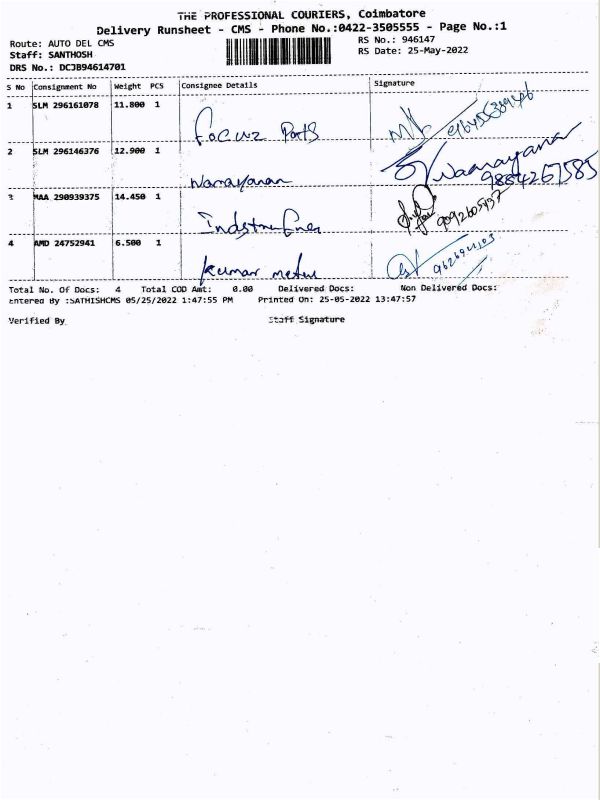 THE PROFESSIONAL COURIERS, Coimbatore
Delivery Runsheet - CMS - Phone No.:0422-3505555 - Page No.:1
Route: AUTO DEL CMS
RS No.: 946147
Staff: SANTHOSH
RS Date: 25-May-2022
DRS No.: DCJB94614701
S No Consignment No Weight PCS Consignee Details Signature
1 SLM 296161078 11.800 1
Focuz Parts
2 SLM 296146376 12.900 1
Narayanan 9884267585
3 MAA 290939375 14.450 1
4 AMD 24752941 6.500 1
Kumar
Total No. Of Docs: 4 Total COD Amt: 0.00 Delivered Docs: Non Delivered Docs:
Entered By :SATHISHCMS 05/25/2022 1:47:55 PM Printed On: 25-05-2022 13:47:57
Verified By Staff Signature